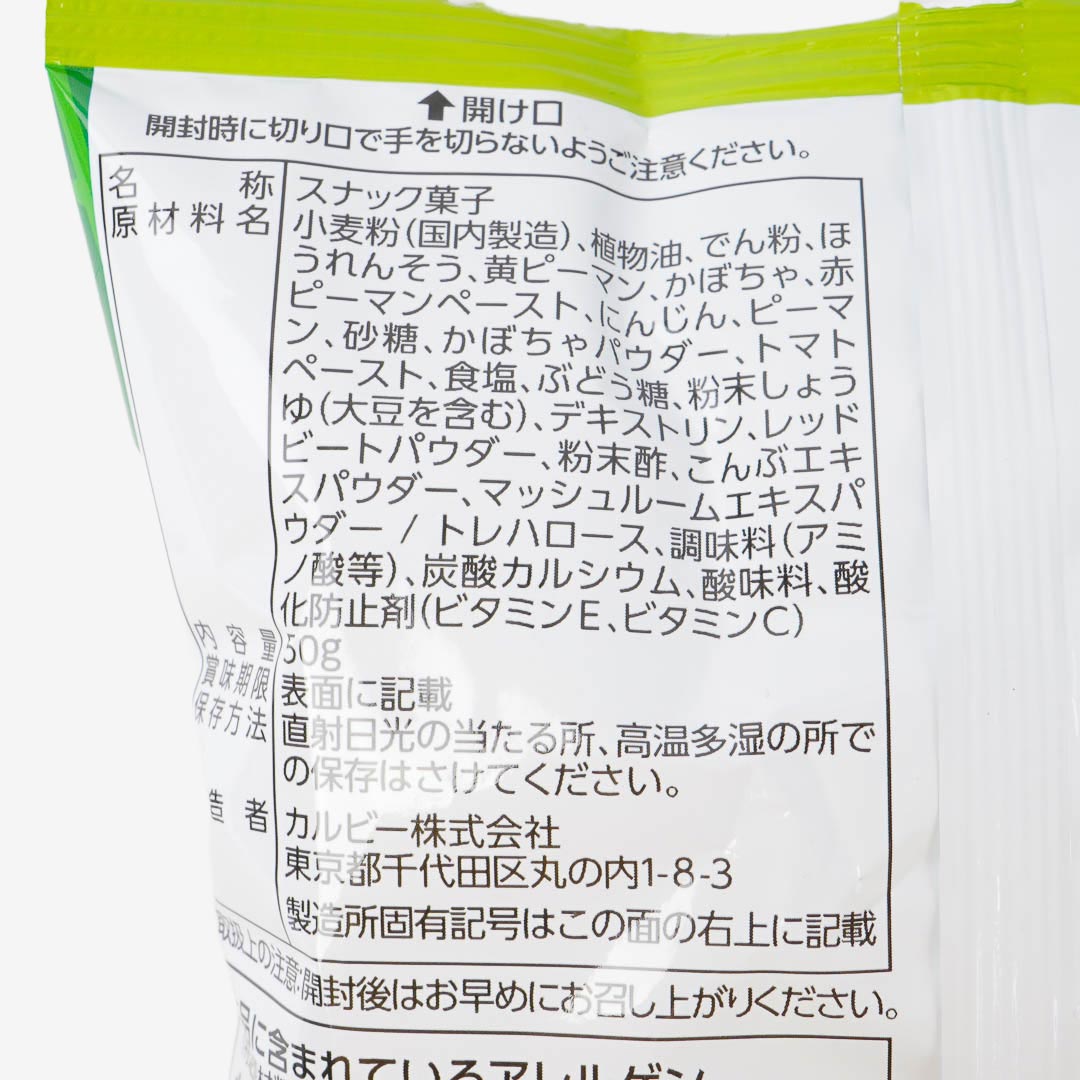 ⬆開け口
開封時に切り口で手を切らないようご注意ください。
名称 スナック菓子
原材料名 小麦粉(国内製造)、植物油、でん粉、ほ
うれんそう、黄ピーマン、かぼちゃ、赤
ピーマンペースト、にんじん、ピーマ
ン、砂糖、かぼちゃパウダー、トマト
ペースト、食塩、ぶどう糖、粉末しょう
ゆ(大豆を含む)、デキストリン、レッド
ビートパウダー、粉末酢、こんぶエキ
スパウダー、マッシュルームエキスパ
ウダー / トレハロース、調味料(アミ
ノ酸等)、炭酸カルシウム、酸味料、酸
化防止剤(ビタミンE、ビタミンC)
内容量 50g
賞味期限 表面に記載
保存方法 直射日光の当たる所、高温多湿の所で
の保存はさけてください。
造者 カルビー株式会社
東京都千代田区丸の内1-8-3
製造所固有記号はこの面の右上に記載
取扱上の注意:開封後はお早めにお召し上がりください。
品に含まれているアレルゲン